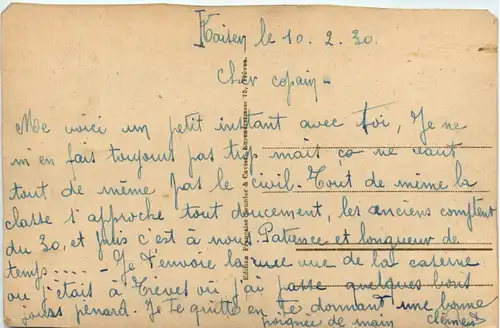 Kaisers le 10. 2. 30.
Cher copain -
Me voici un petit instant avec toi, Je ne
m'en fait toujours pas trop mais ça ne vaut
tout de même pas le civil. Tout de même la
classe s'approche tout doucement, les anciens comptent
du 30, et puis c'est à nous. Patience et longueur de
temps..... - Je t'envoie la vue de la caserne
ou j'étais à Trèves où j'ai passé quelques bons
jours pénard. Je te quitte en te donnant une bonne
poignée de main Clément
Edition Française Daunier & Cavier, 75, Trèves.